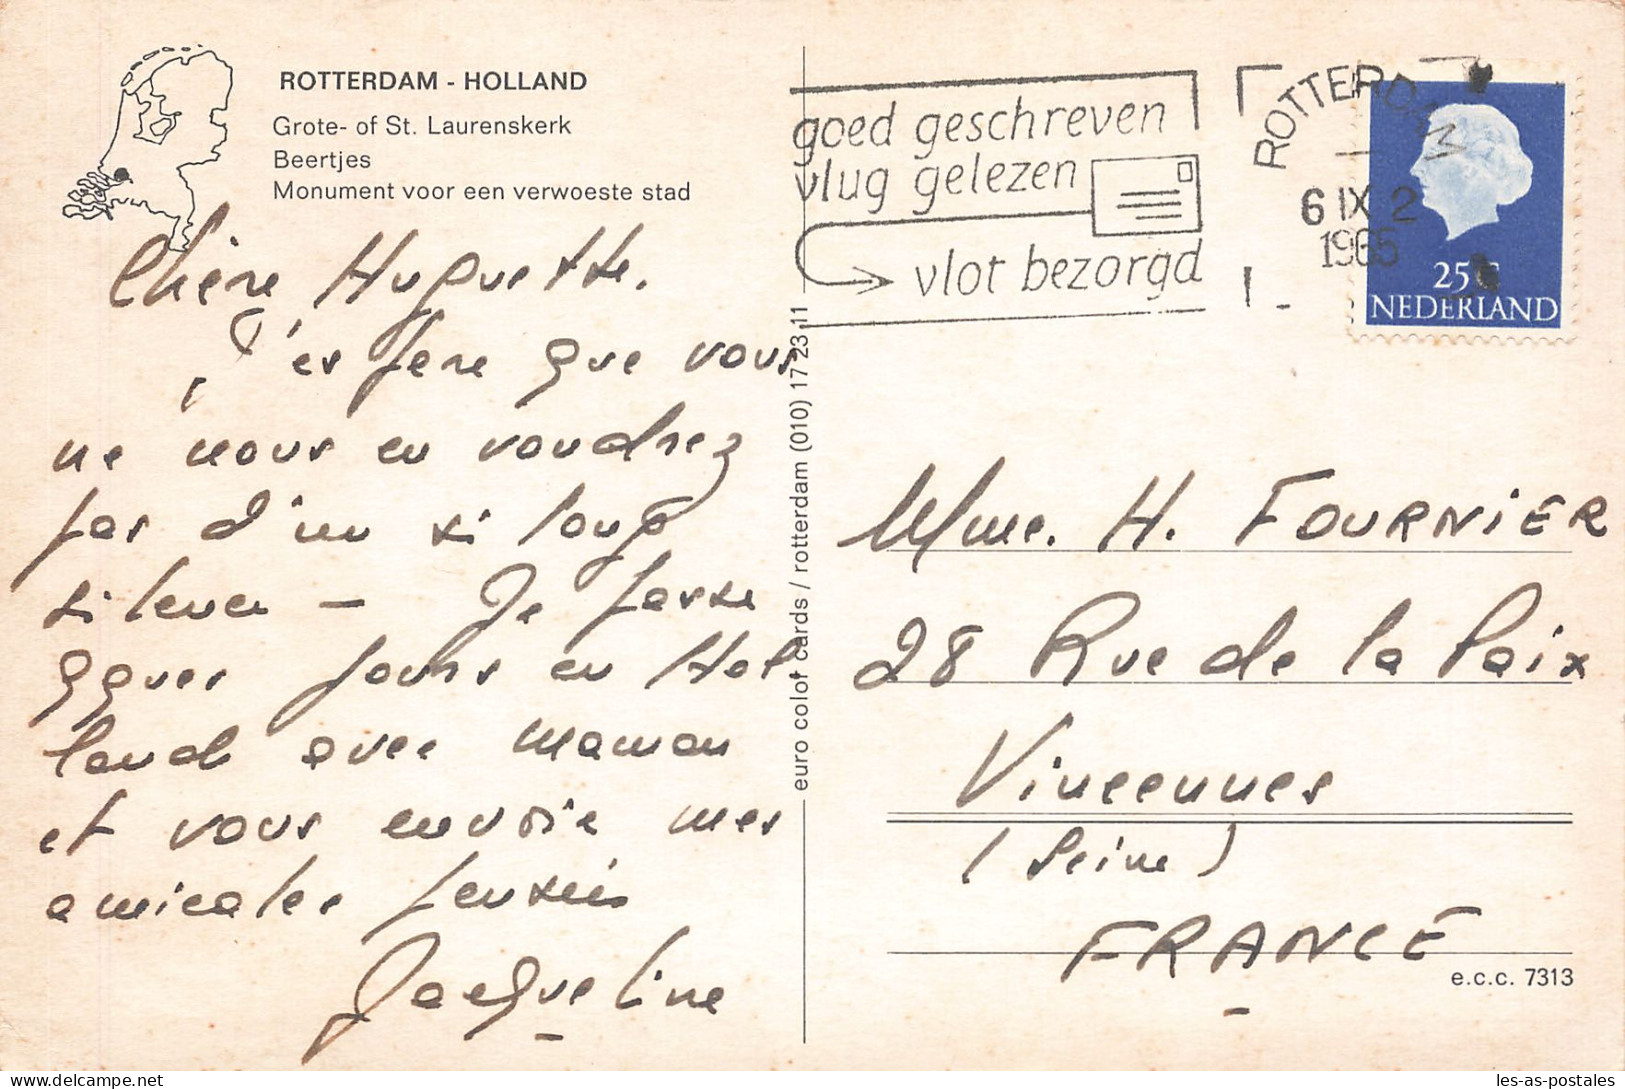 ROTTERDAM - HOLLAND
Grote- of St. Laurenskerk
Beertjes
Monument voor een verwoeste stad
Chère Huguette.
J'espère que vous
ne nous en voudrez
pas d'un si long
silence - Je passe
qques jours en Hol
land avec maman
et vous envoie mes
amicales pensées
Jacqueline
euro color cards / rotterdam (010) 17 23 11
goed geschreven
vlug gelezen
vlot bezorgd
ROTTERDAM
6 IX 2
1965
25 C
NEDERLAND
Mme. H. FOURNIER
28 Rue de la Paix
Vincennes
(Seine)
FRANCE
e.c.c. 7313
les-as-postales